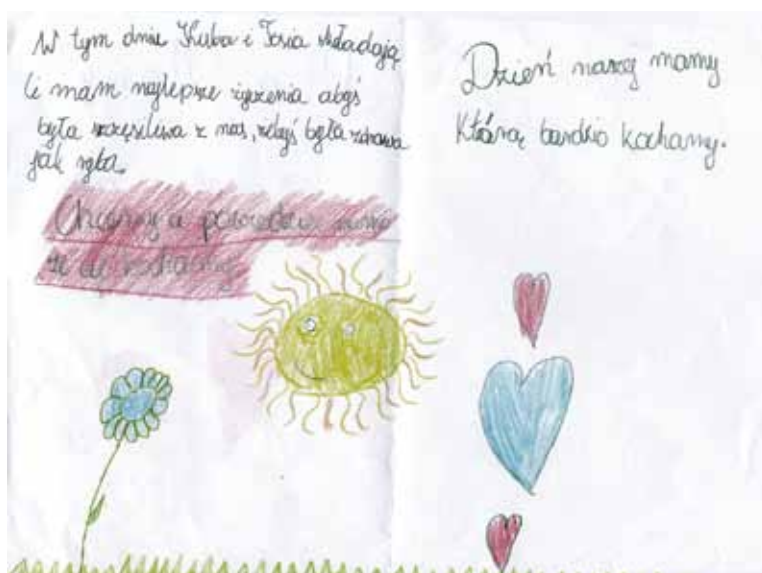 W tym dniu Kuba i Tosia składają
Ci mam najlepsze życzenia abyś
była szczęśliwa z nas, żebyś była zdrowa
jak ryba.
Chcemy ci powiedzieć mamo
że cię kochamy
Dzień naszej mamy
Którą bardzo kochamy.